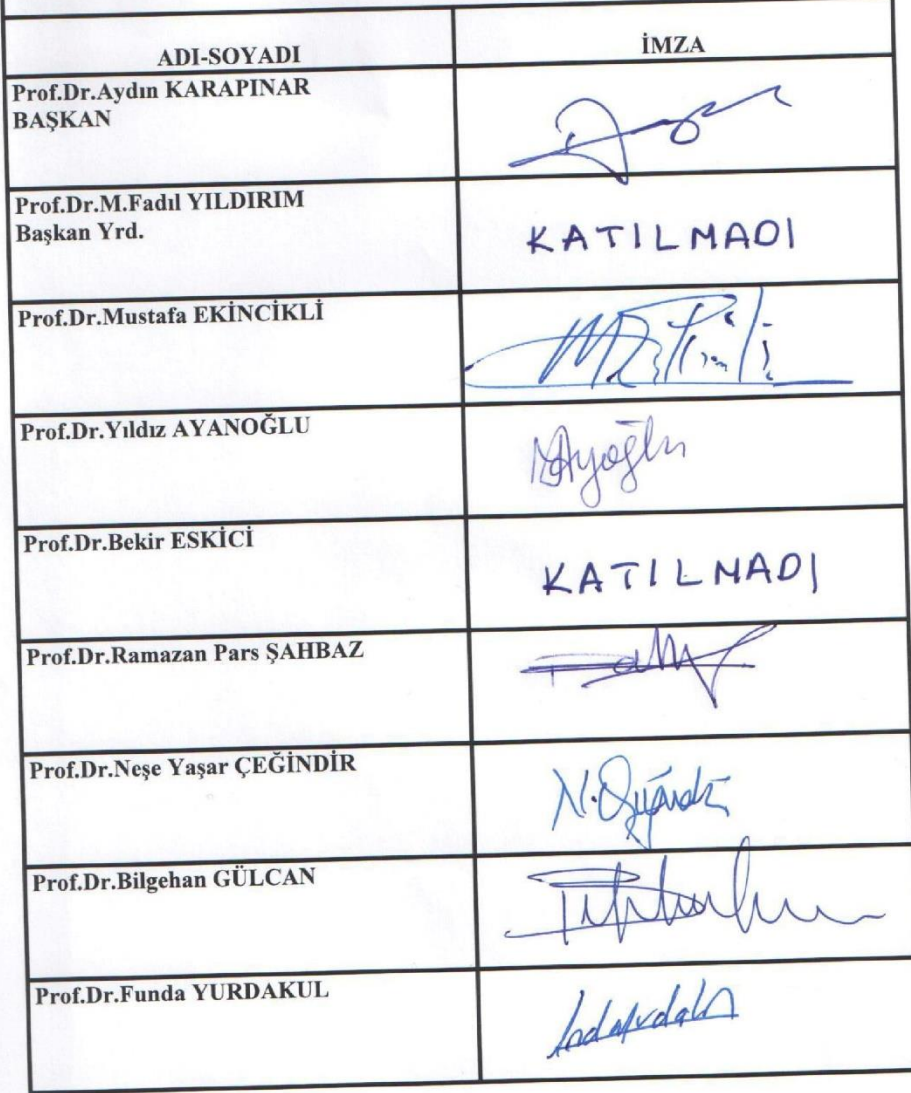 ADI-SOYADI İMZA
Prof.Dr.Aydın KARAPINAR
BAŞKAN
Prof.Dr.M.Fadıl YILDIRIM
Başkan Yrd.
KATILMADI
Prof.Dr.Mustafa EKİNCİKLİ
Prof.Dr.Yıldız AYANOĞLU
Prof.Dr.Bekir ESKİCİ
KATILMADI
Prof.Dr.Ramazan Pars ŞAHBAZ
Prof.Dr.Neşe Yaşar ÇEĞİNDİR
Prof.Dr.Bilgehan GÜLCAN
Prof.Dr.Funda YURDAKUL